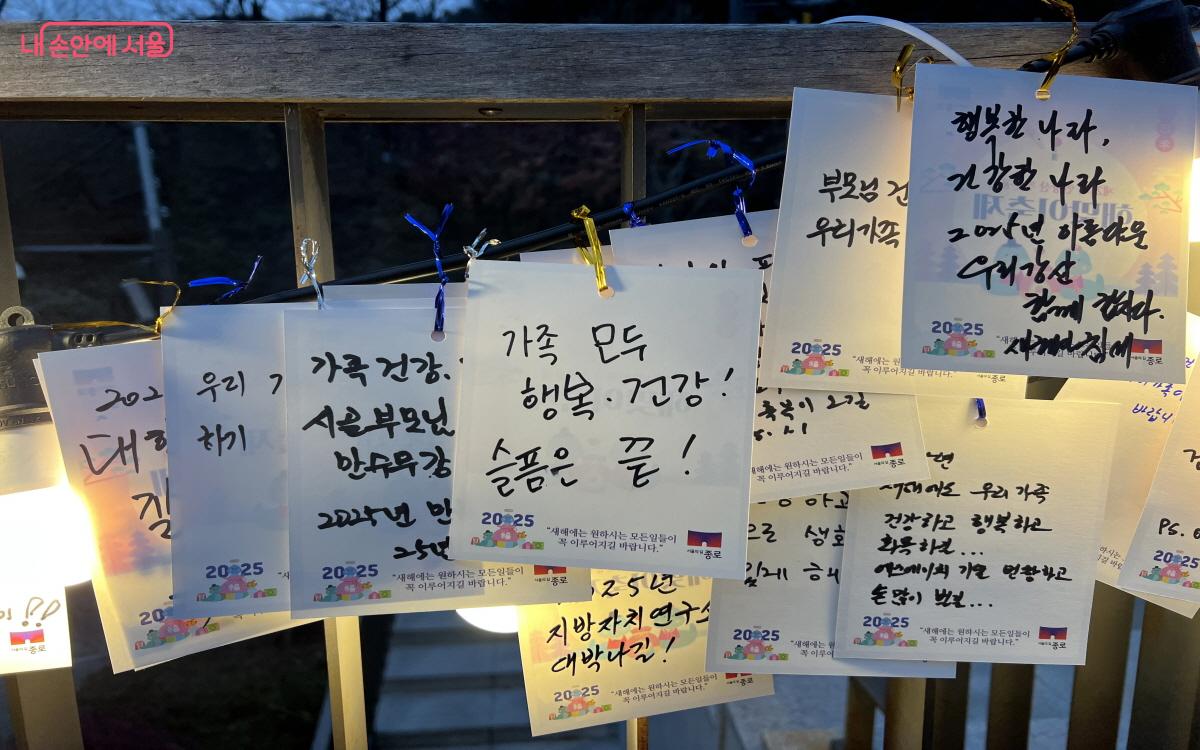 내 손안에 서울
행복한 나라,
건강한 나라
2025년 아름다운
우리강산
함께 갑시다.
2025
종로
부모님 건
우리가족
2025
"새해에는 원하시는 모든일들이
꼭 이루어지길 바랍니다."
종로
가족 모두
행복·건강!
슬픔은 끝!
2025
"새해에는 원하시는 모든일들이
꼭 이루어지길 바랍니다."
종로
가족 건강.
서울부모님
만수무강
2025년 만
25년
2025
"새해에는 원하시는 모든일들이
꼭 이루어지길 바랍니다."
종로
우리 가
하기
2025
202
대한
2025년
지방자치연구소
대박나길!
2025
"새해에는 원하시는 모든일들이
꼭 이루어지길 바랍니다."
새해에는 원하시는 모든일들이
꼭 이루어지길 바랍니다."
종로
2025
새해에도 우리 가족
건강하고 행복하고
화목하길...
에스에이치 기운 번창하고
돈 많이 벌길...
2025
"새해에는 원하시는 모든일들이
꼭 이루어지길 바랍니다."
종로
바랍니
PS.
2025
종로